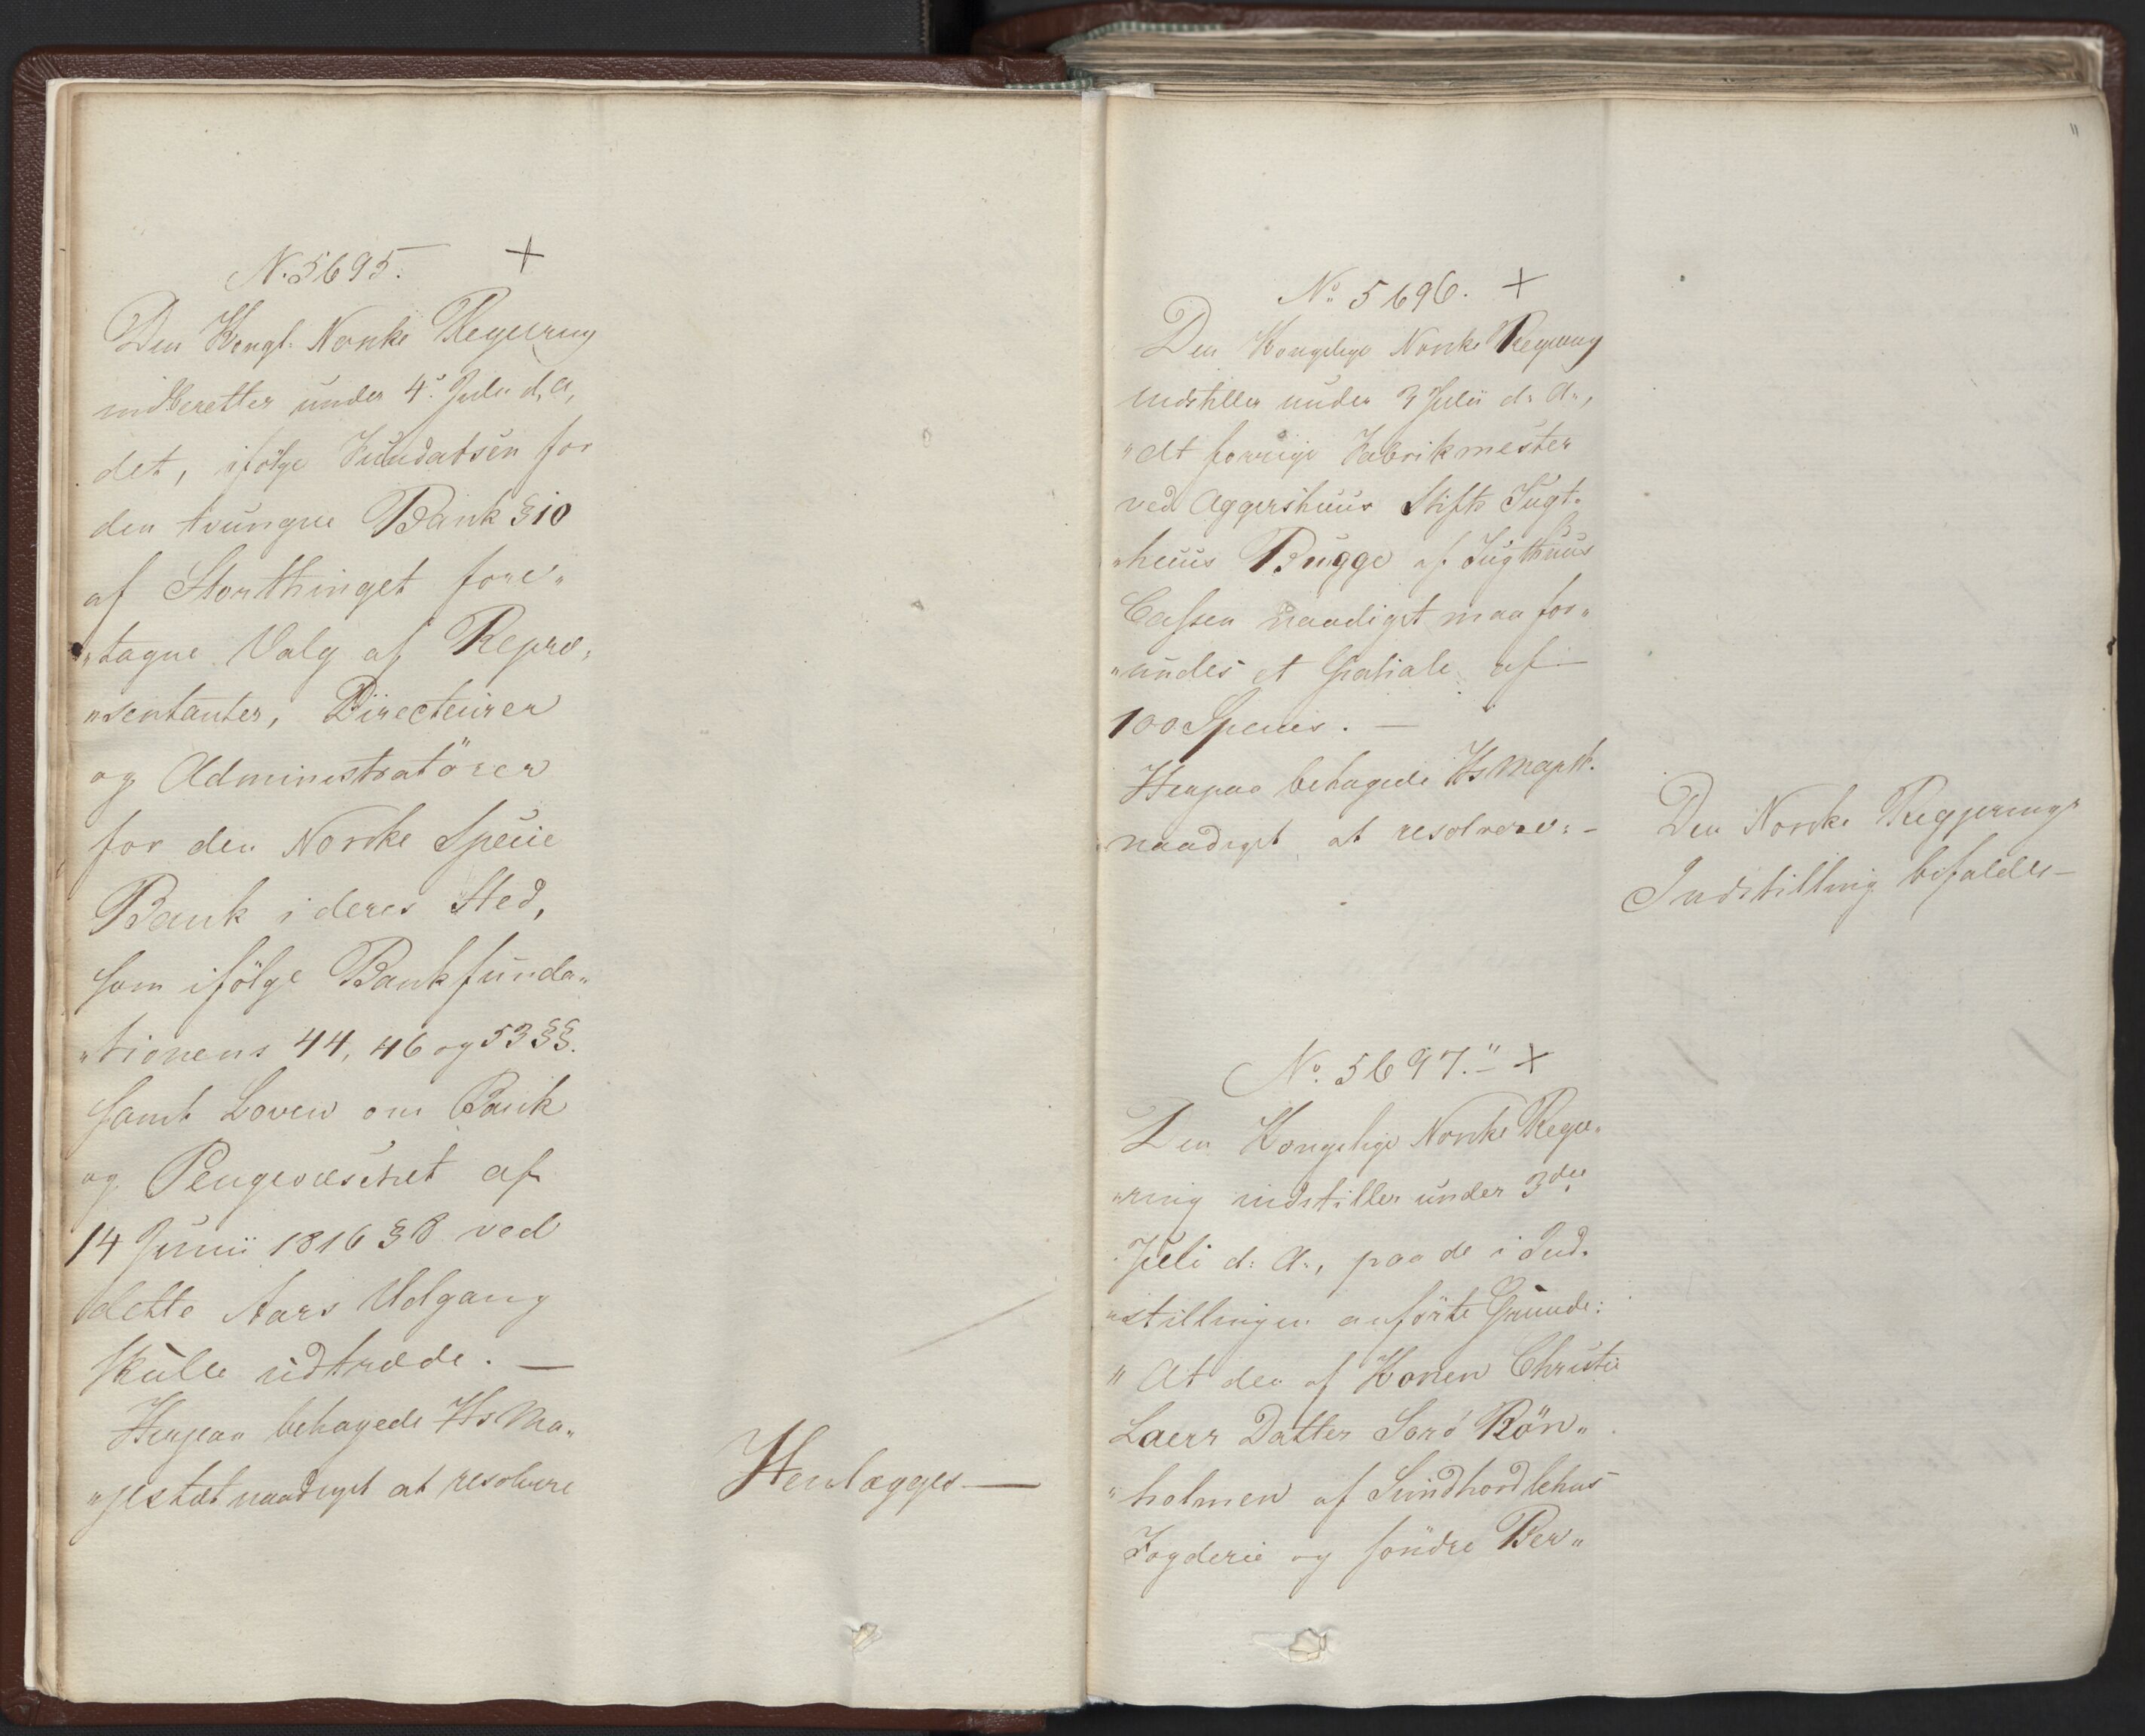 N. 5695. +
Den Kongl: Norske Regiering
indberetter under 4de Julii d. A,
det, ifölge Fundatsen for
den tvungne Bank § 10
af Storthinget fore„
„tagne Valg af Repræ„
„sentanter, Directeurer
og Administratörer
for den Norske Specie
Bank i deres Sted,
som ifölge Bankfunda„
„tionens 44, 46 og 53 §§.
samt Loven om Bank
og Pengevæsenet af
14 Junii 1816 § 8 ved
dette Aars Udgang
skulle udtræde. —
Herpaa behagede Hs Ma„
„jestæt naadigst at resolvere
Henlægges —
11
No 5696. +
Den Kongelige Norske Regiering
indstiller under 3 Julii d. A.,
"At forrige Fabrikmester
ved Aggershuus Stifts Tugt„
„huus Bugge af Tugthuus
Cassen naadigst maa for„
„undes et Gratiale af
100 Species. —
Herpaa behagede Hs Majestt.
naadigst at resolvere: —
Den Norske Regjerings
Indstilling bifaldes —
No. 5697." +
Den Kongelige Norske Regie„
„ring indstiller under 3die
Juli d: A., paa de i Ind„
„stillingen anförte Grunde:
" At den af Konen Christi
Laers Datter Sörö Rön„
„holmen af Sundhordlehns
Fogderie og söndre Ber„